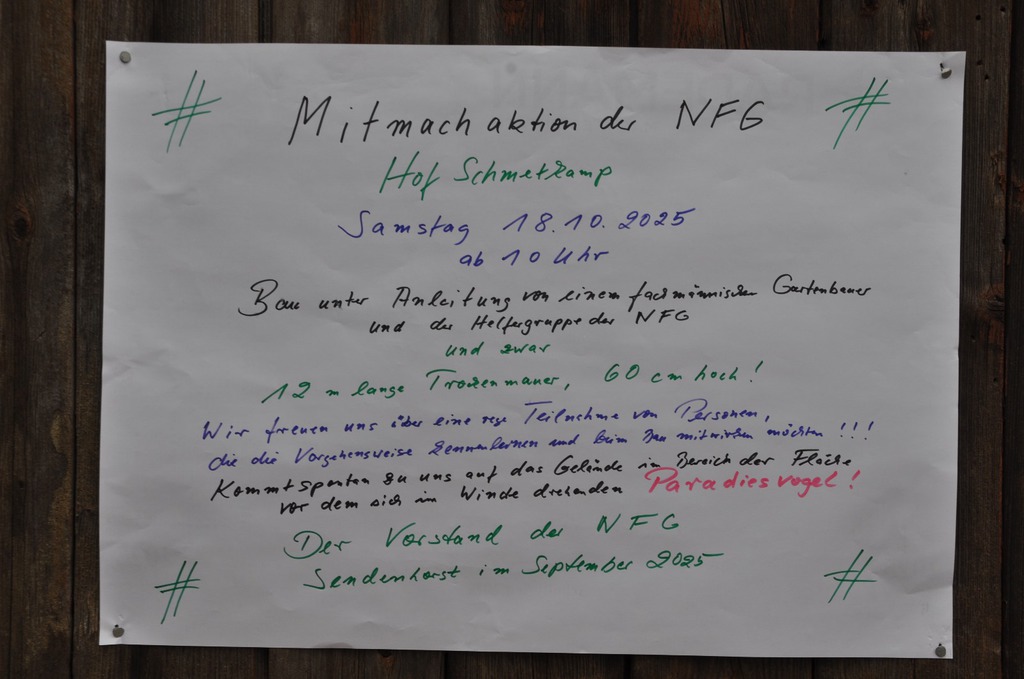 # #
Mitmachaktion der NFG
Hof Schmetkamp
Samstag 18.10.2025
ab 10 Uhr
Bau unter Anleitung von einem fachmännischen Gartenbauer
und der Helfergruppe der NFG
und zwar
12 m lange Trockenmauer, 60 cm hoch!
Wir freuen uns über eine rege Teilnahme von Personen,
die die Vorgehensweise kennenlernen und beim Bau mitwirken möchten !!!
Kommt spontan zu uns auf das Gelände im Bereich der Fläche
vor dem sich im Winde drehenden Paradiesvogel!
Der Vorstand der NFG
Sendenhorst im September 2025
# #